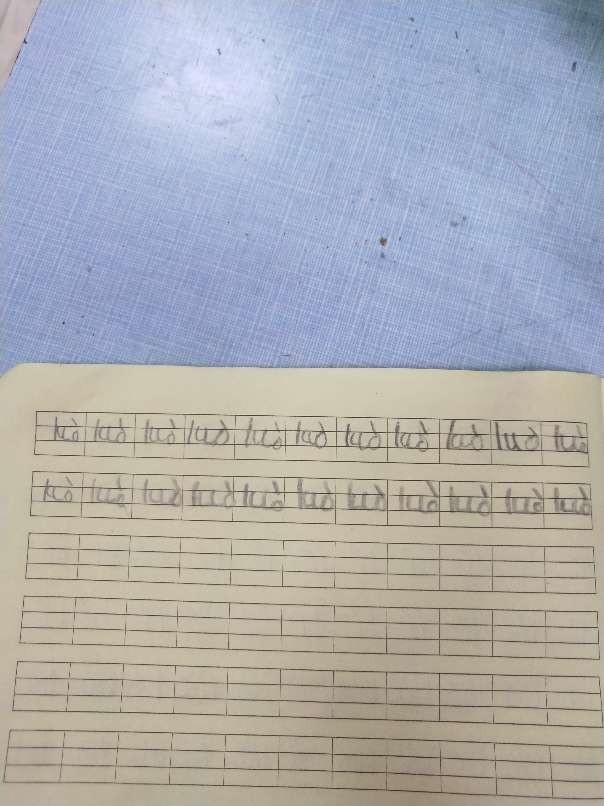 luò luò luò luò luò luò luò luò luò luò luò
luò luò luò luò luò luò luò luò luò luò luò